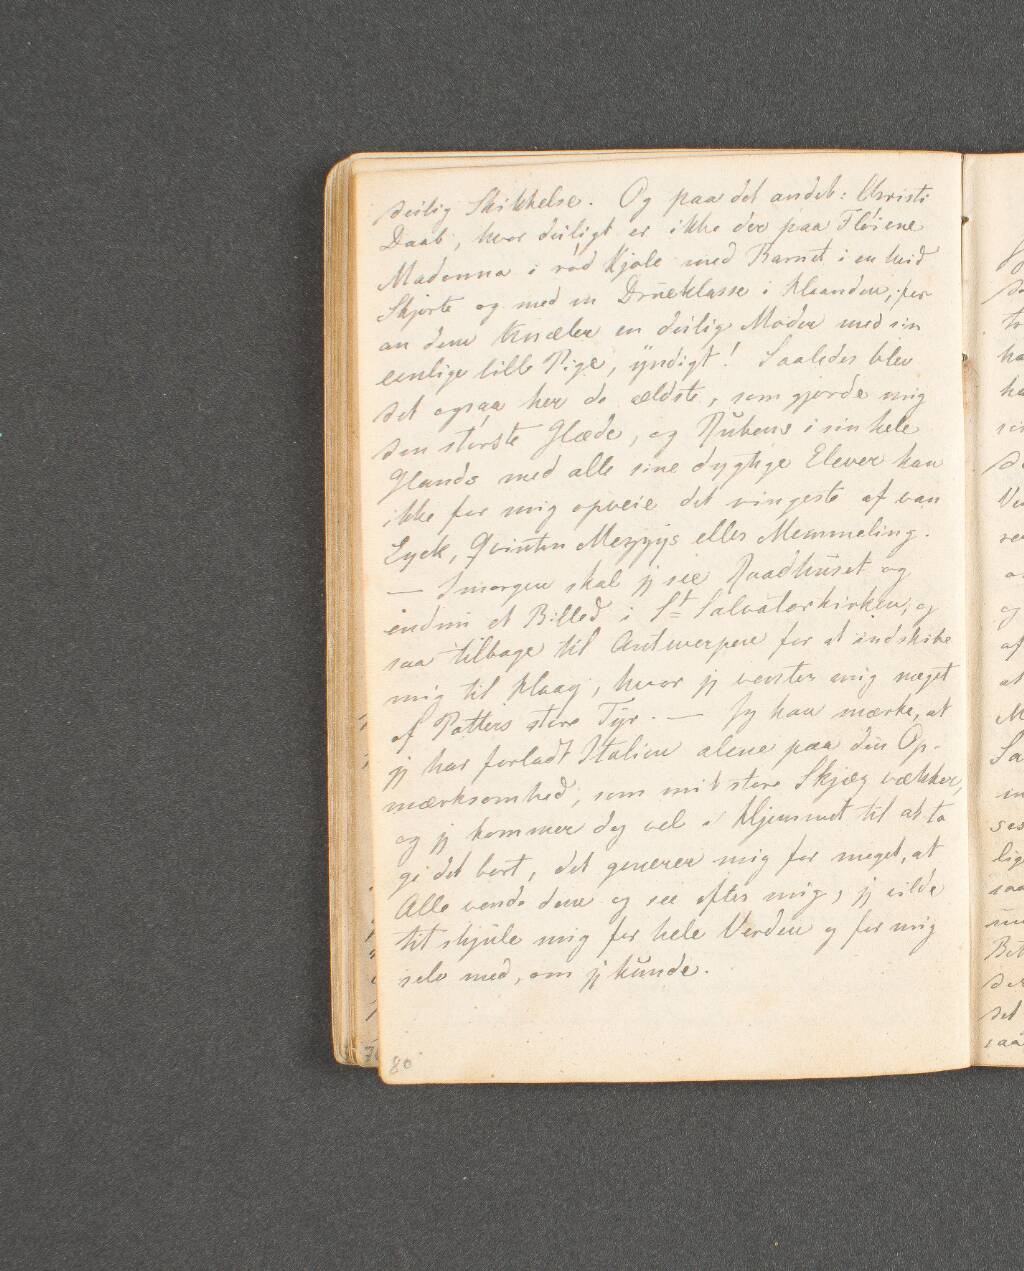 deilig Skikkelse. Og paa det andet: Christi
Daab, hvor deiligt er ikke der paa Fløiene
Madonna i rød Kjole med Barnet i en hvid
Skjorte og med en Drueklasse i Haanden, for
an dem knæler en deilig Moder med sin
eenlige lille Pige, yndigt! Saaledes blev
det ogsaa her de ældste, som gjorde mig
den største Glæde, og Rubens i sin hele
Glands med alle sine dygtige Elever kan
ikke for mig opveie det ringeste af van
Eyck, Qvintin Messys eller Memmeling.
— Imorgen skal jeg see Raadhuset og
endnu et Billed i St Salvatorkirken, og
saa tilbage til Antwerpen for at indskibe
mig til Haag, hvor jeg venter mig meget
af Potters store Tyr. — Jeg kan mærke, at
jeg har forladt Italien alene paa den Op-
mærksomhed, som mit store Skjæg vækker,
og jeg kommer dog vel i Hjemmet til at ta
ge det bort, det generer mig for meget, at
Alle vende dem og see efter mig, jeg vilde
tit skjule mig for hele Verden og for mig
selv med, om jeg kunde.
80